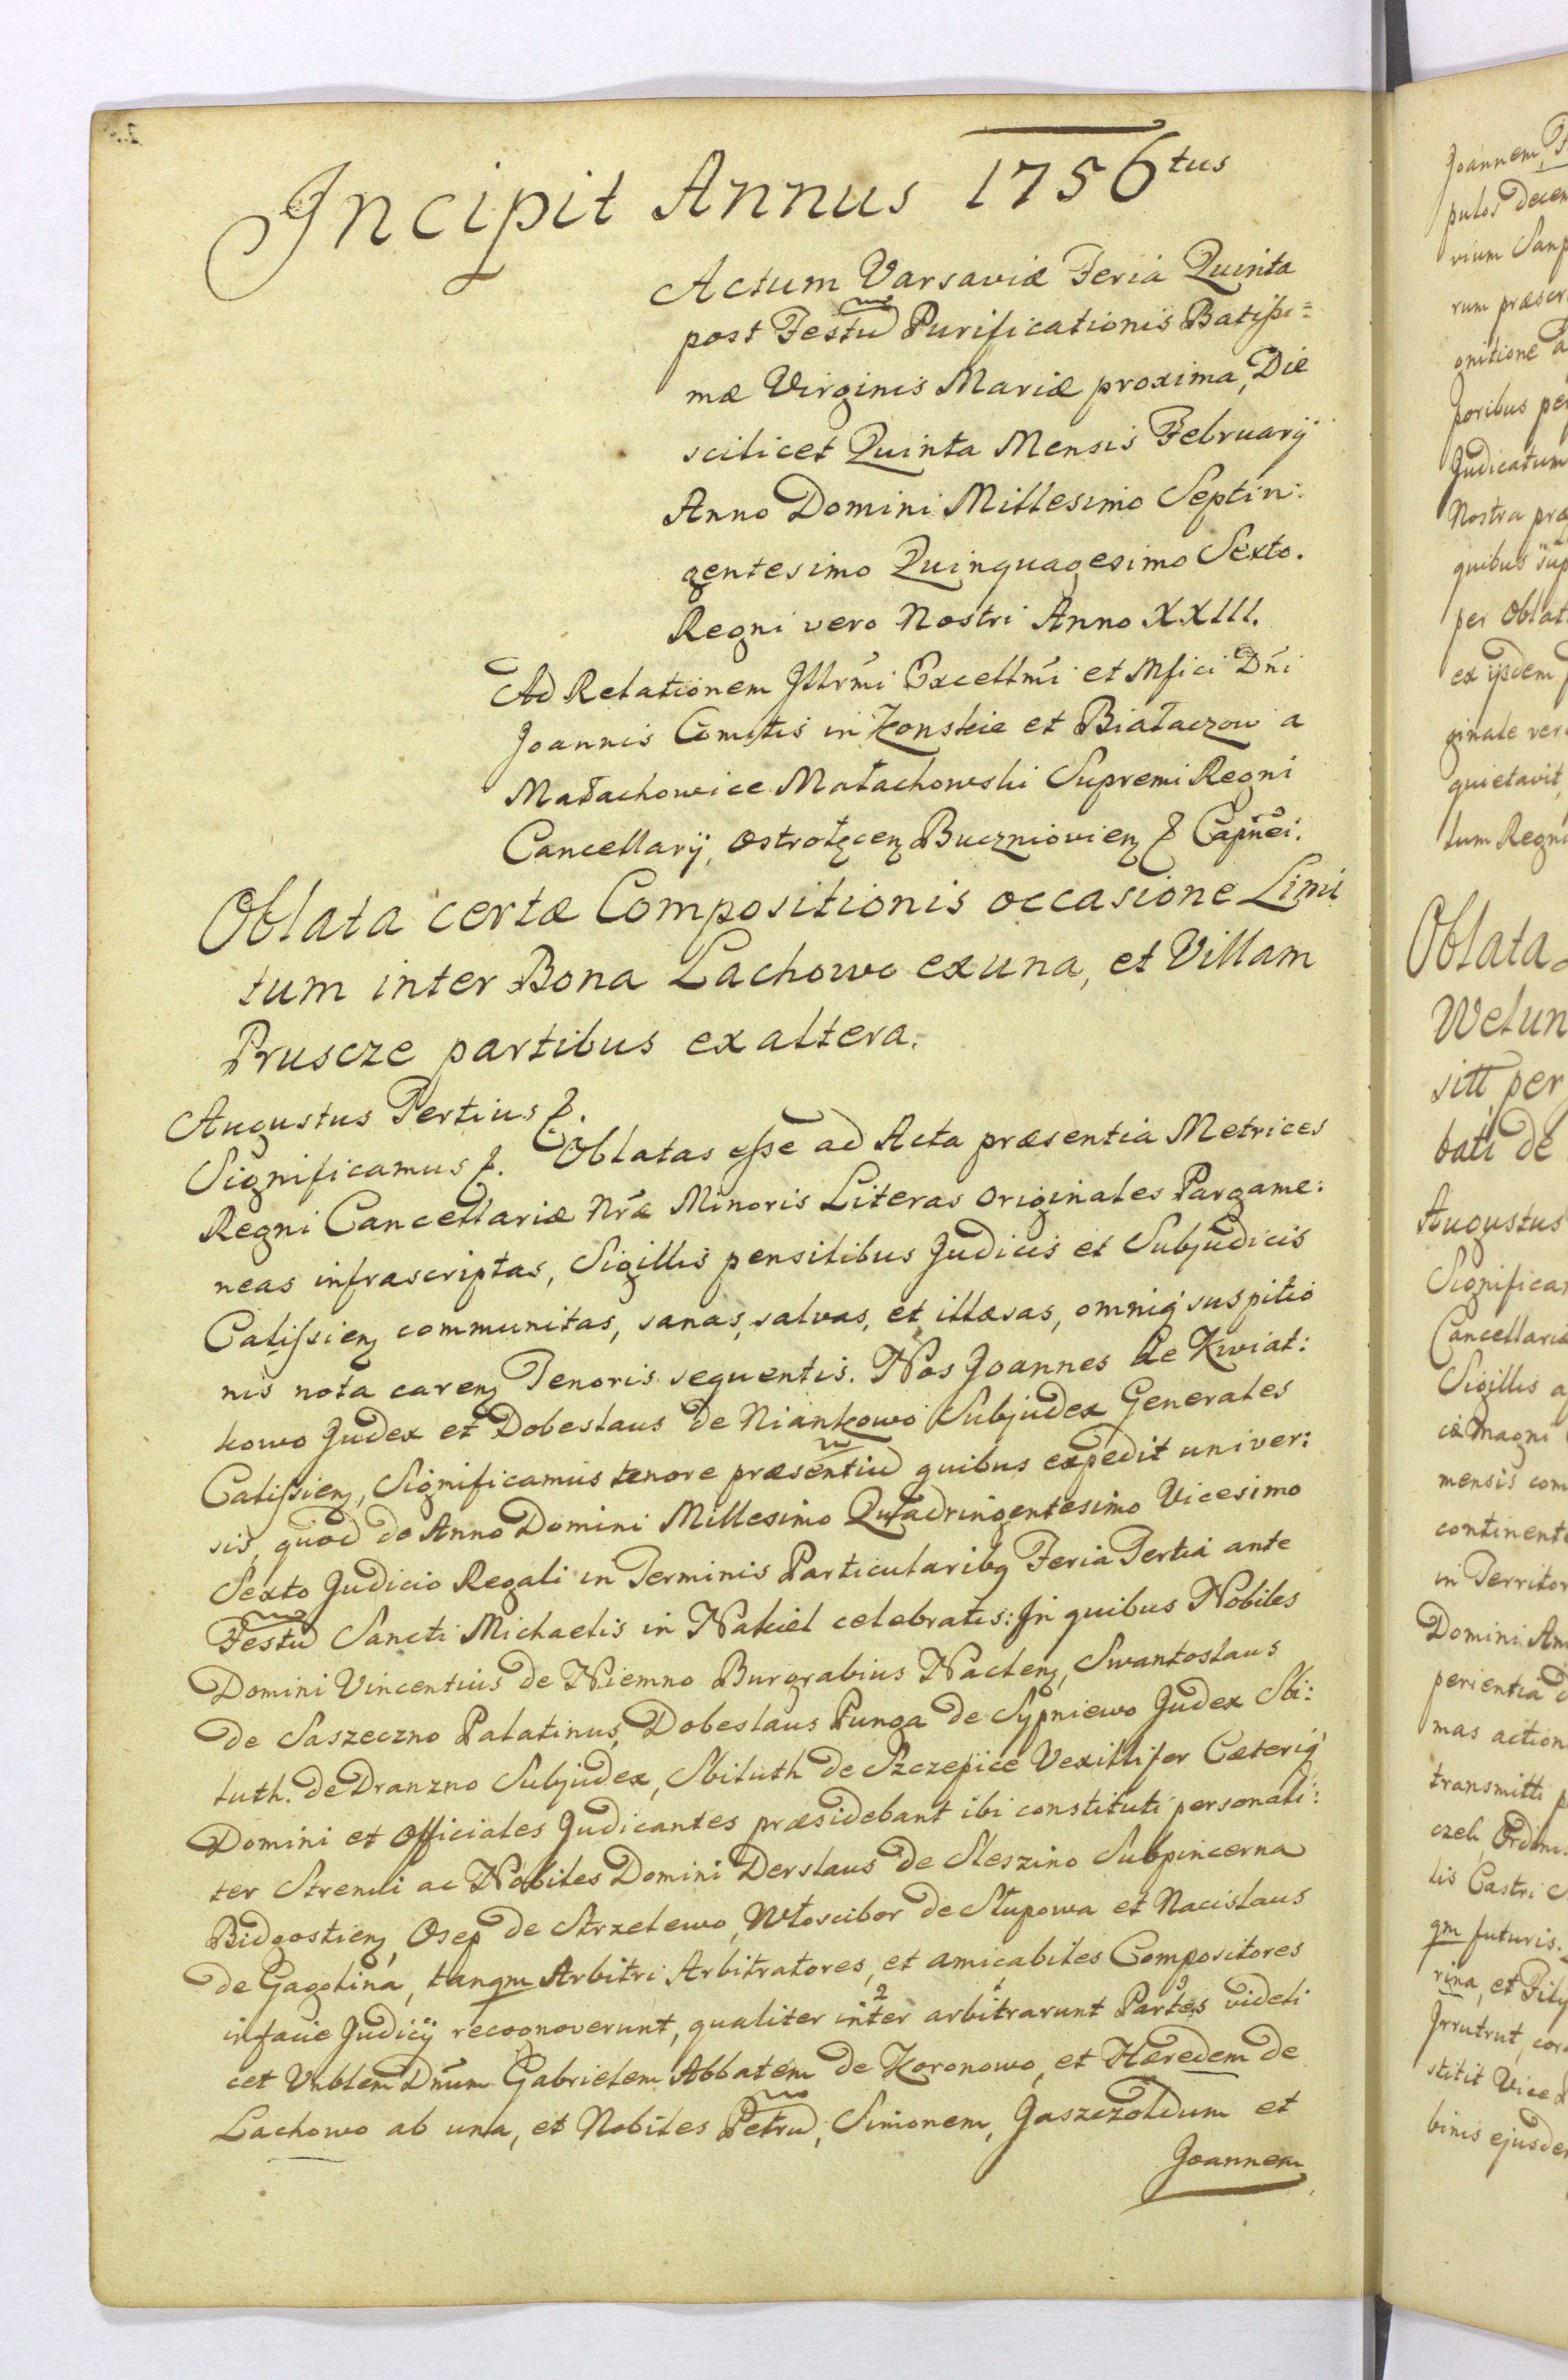 Incipit Annus 1756tus
Actum Varsaviæ Feria Quinta
post Festū Purificationis Batissi=
mæ Virginis Mariæ proxima, Die
scilicet Quinta Mensis Februarij
Anno Domini Millesimo Septin:
gentesimo Quinquagesimo Sexto.
Regni vero Nostri Anno XXIII.
Ad Relationem Illrmi Excellmi et Mfici Dni
Joannis Comitis in Konskie et Białaczow a
Małachowice Małachowski Supremi Regni
Cancellarij, Ostrołęcen Buczniovien Capnei.
Oblata certæ Compositionis occasione Limi
tum inter Bona Lachowo ex una, et Villam
Pruscze partibus ex altera.
Augustus Tertius
Significamus Oblatas esse ad Acta præsentia Metrices
Regni Cancellariæ Nræ Minoris Literas Originales Pargame:
neas infrascriptas, Sigillis pensilibus Judicis et Subjudicis
Calissien communitas, sanas, salvas, et illæsas, omniq suspitio
nis nota caren Tenoris sequentis. Nos Joannes de Kwiat:
kowo Judex et Dobeslaus de Niankowo Subjudex Generales
Calissien, Significamus tenore præsentiū quibus expedit univer:
sis, quod de Anno Domini Millesimo Quadringentesimo Vicesimo
Sexto Judicio Regali in Terminis Particularibq Feria Tertia ante
Festū Sancti Michaelis in Nakiel celebratis: In quibus Nobiles
Domini Vincentius de Niemno Burgrabius Naclen, Swantoslaus
de Saszeczno Palatinus, Dobeslaus Punga de Sypniewo Judex Sbi:
luth. de Dranzno Subjudex, Sbiluth de Szczepice Vexillifer Cæteriq
Domini et Officiales Judicantes præsidebant ibi constituti personali:
ter Strenui ac Nobiles Domini Derslaus de Sleszino Subpincerna
Bidgostien, Osep de Strzelewo, Włoscibor de Słupowa et Nacislaus
de Gagolina, tanqm Arbitri Arbitratores, et amicabiles Compositores
in facie Judicij recognoverunt, qualiter inter arbitrarunt Partes videli
cet Vnblem Dnum Gabrielem Abbatem de Koronowo, et Hæredem de
Lachowo ab una, et Nobiles Petrū, Simonem, Jaszczoldum et
Joannem
Joannem
pulos
rum
onitione
poribus
Judicatum
Nostra
quibus
per Oblat
ex ijsdem
ginale
quietavit,
tum Regni
Oblata
Welun
sitt per
bati de
Augustus
Cancellaria
Sigillis
ciæ Magni
mensis
continent
in
Domini
perientia
mas action
transmitti
lis Castri
qm futuris.
rina, et
stitit
binis